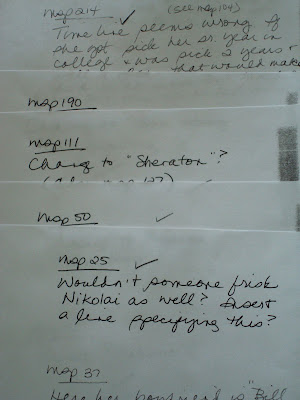 msp 214 ✓ (see msp 104)
Time line seems wrong if
she got pick her sr. year in
college & was pick 2 years +
that would make
msp 190
msp 111
Change to "Sheraton"?
msp 50 ✓
msp 25 ✓
Wouldn't someone frisk
Nikolai as well? Insert
a line specifying this?
msp 37
Here her boyfriend is "Bill